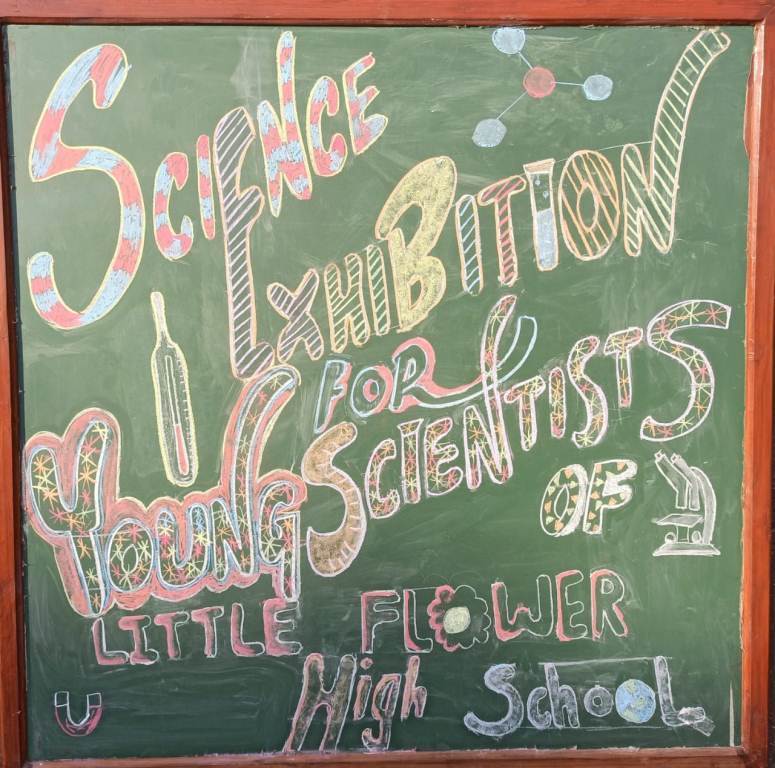 SCIENCE
EXHIBITION
FOR
YOUNG SCIENTISTS
OF
LITTLE FLOWER
High School